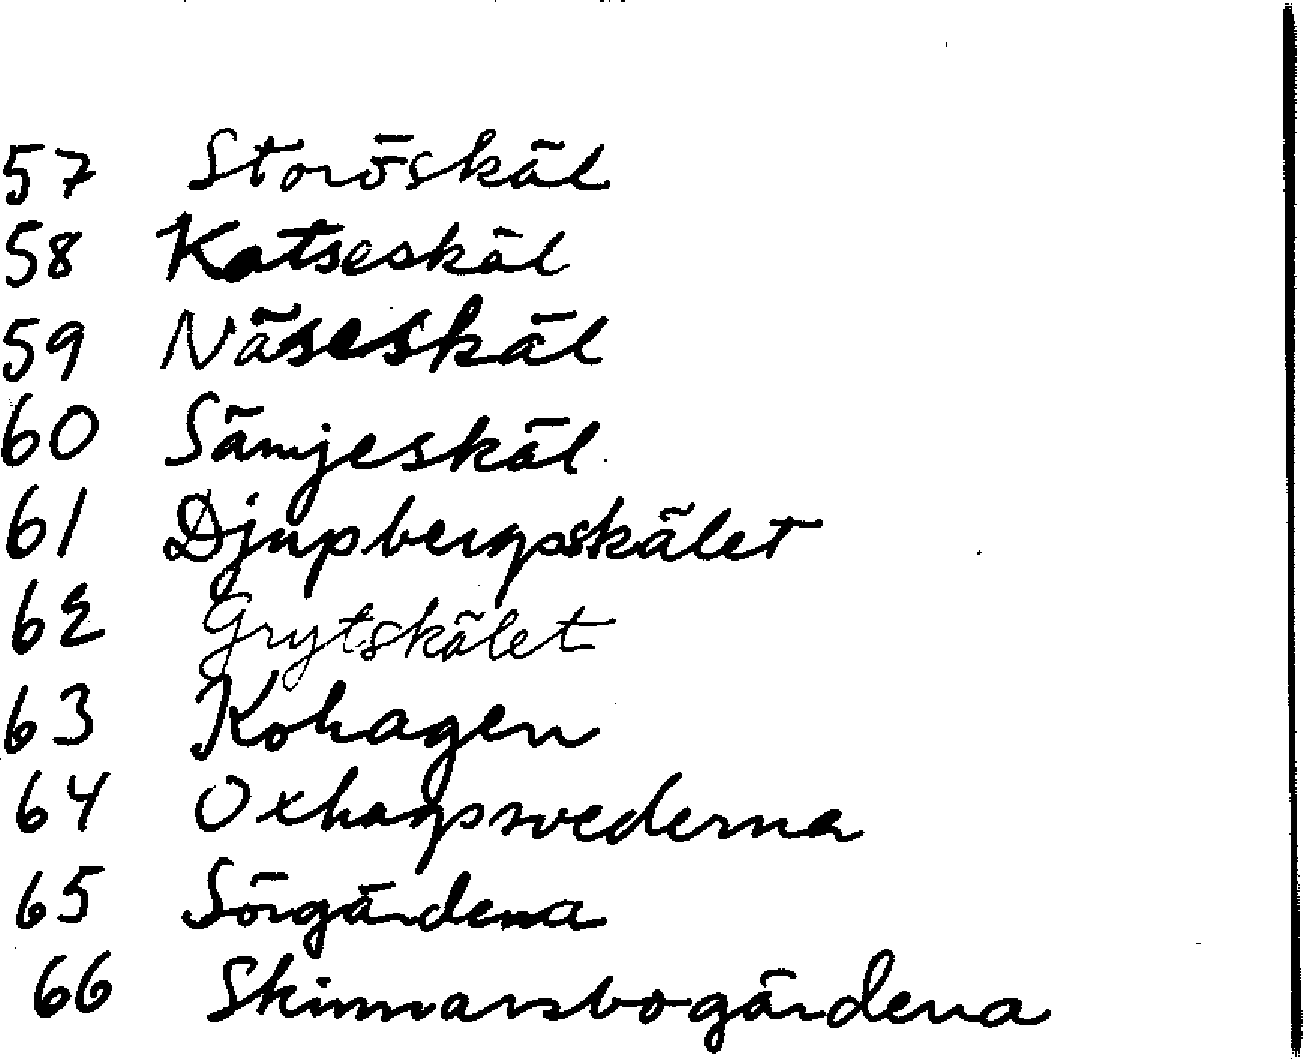 57 Storöskäl
58 Katseskäl
59 Näseskäl
60 Sämjeskäl
61 Djupbergsskälet
62 Grytskälet
63 Kohagen
64 Oxhagssvederna
65 Sörgärdena
66 Skinnarsbogärdena